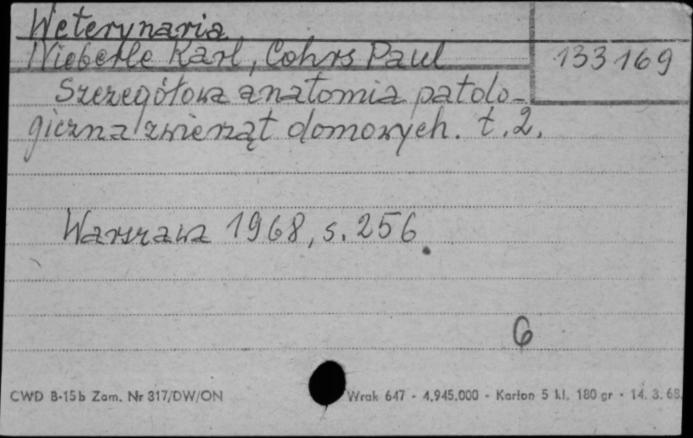 Weterynaria
Nieberle Karl, Cohrs Paul
133169
Szczegółowa anatomia patolo-
giczna zwierząt domowych. t. 2.
Warszawa 1968, s. 256.
6
CWD B-15b Zam. Nr 317/DW/ON Wrak 647 - 4.945.000 - Karton 5 kl. 180 gr - 14. 3. 68.